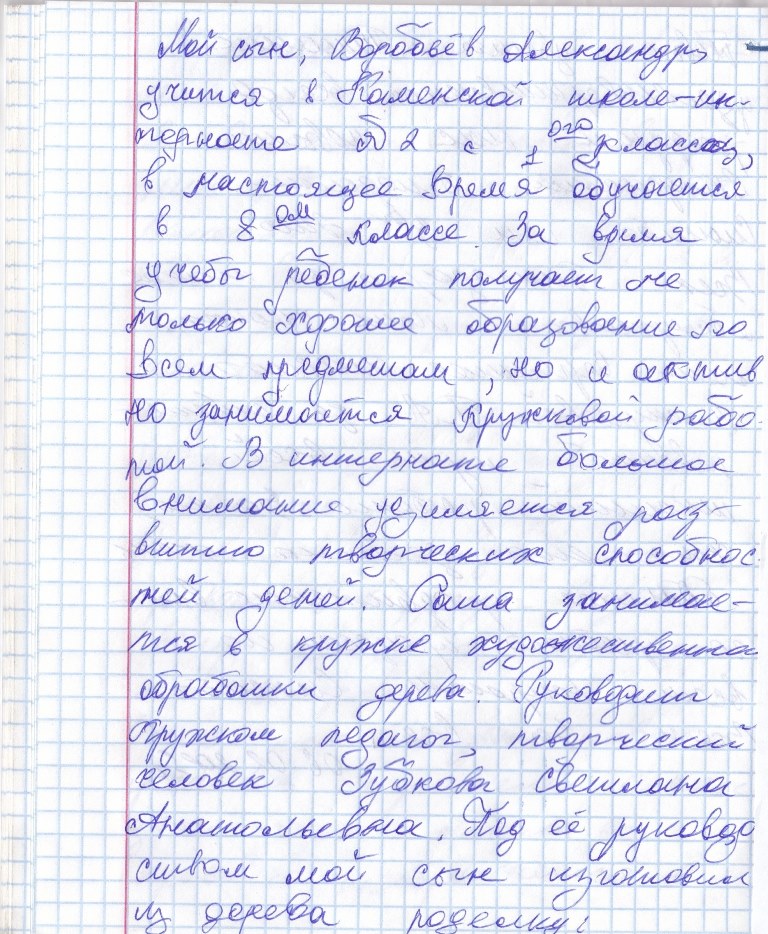 Мой сын, Воробьёв Александр,
учится в Каменской школе-ин-
тернате № 2 с 1 ого класса,
в настоящее время обучается
в 8 ом классе. За время
учебы ребенок получает не
только хорошее образование по
всем предметам, но и актив
но занимается кружковой рабо-
той. В интернате большое
внимание уделяется раз-
витию творческих способнос
тей детей. Саша занимае-
тся в кружке художественной
обработки дерева. Руководит
кружком педагог, творческий
человек Зубкова Светлана
Анатольевна. Под её руковод
ством мой сын изготовил
из дерева поделку: